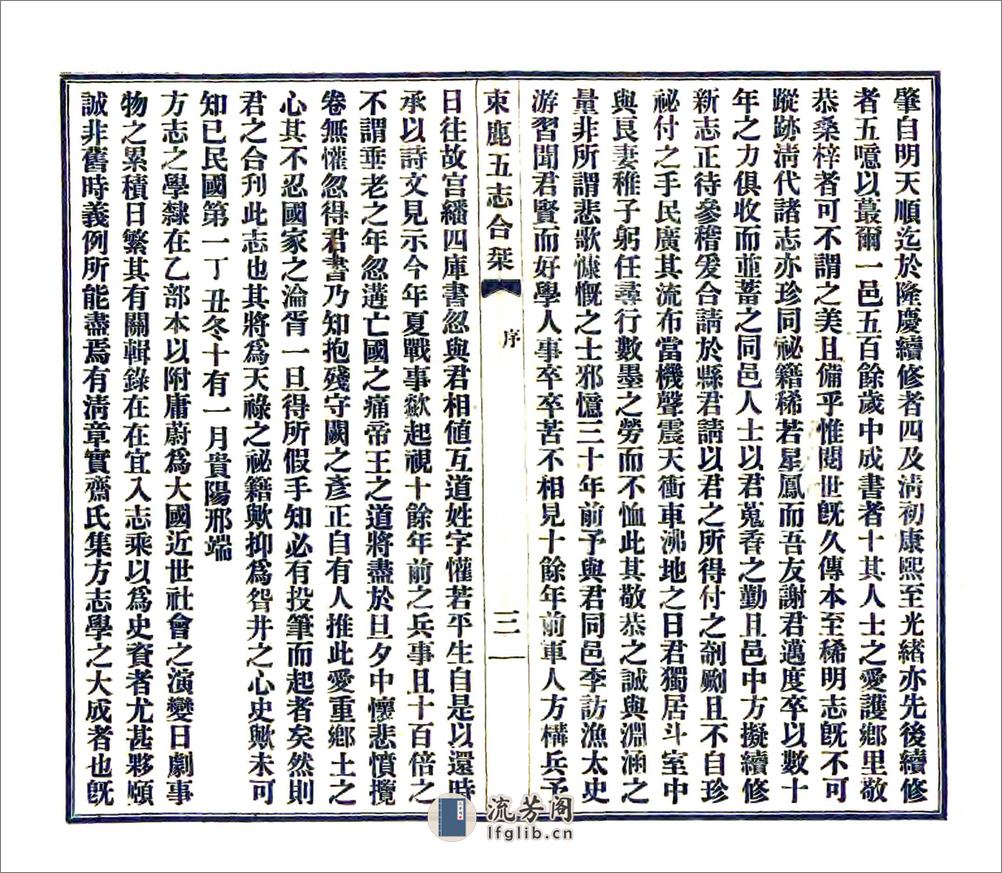 肇自明天順迄於隆慶續修者四及淸初康熙至光緒亦先後續修
者五噫以蕞爾一邑五百餘歲中成書者十其人士之愛護鄉里敬
恭桑梓者可不謂之美且備乎惟閱世旣久傳本至稀明志旣不可
蹤跡淸代諸志亦珍同祕籍稀若星鳳而吾友謝君邁度卒以數十
年之力俱收而並蓄之同邑人士以君蒐香之勤且邑中方擬續修
新志正待參稽爰合請於縣君請以君之所得付之剞劂且不自珍
祕付之手民廣其流布當機聲震天衝車沸地之日君獨居斗室中
與良妻稚子躬任尋行數墨之勞而不恤此其敬恭之誠與淵涵之
量非所謂悲歌慷慨之士邪憶三十年前予與君同邑李訪漁太史
游習聞君賢而好學人事卒卒苦不相見十餘年前軍人方構兵予
束鹿五志合栞
序
三
日往故宮繙四庫書忽與君相値互道姓字懽若平生自是以還時
承以詩文見示今年夏戰事歘起視十餘年前之兵事且十百倍之
不謂垂老之年忽遘亡國之痛帝王之道將盡於旦夕中懷悲憤攬
卷無懽忽得君書乃知抱殘守闕之彥正自有人推此愛重鄉土之
心其不忍國家之淪胥一旦得所假手知必有投筆而起者矣然則
君之合刊此志也其將爲天祿之祕籍歟抑爲眢井之心史歟未可
知已民國第一丁丑冬十有一月貴陽邢端
方志之學隸在乙部本以附庸蔚爲大國近世社會之演變日劇事
物之累積日繁其有關輯錄在在宜入志乘以爲史資者尤甚夥頤
誠非舊時義例所能盡焉有淸章實齋氏集方志學之大成者也旣
流芳阁
lfglib.cn